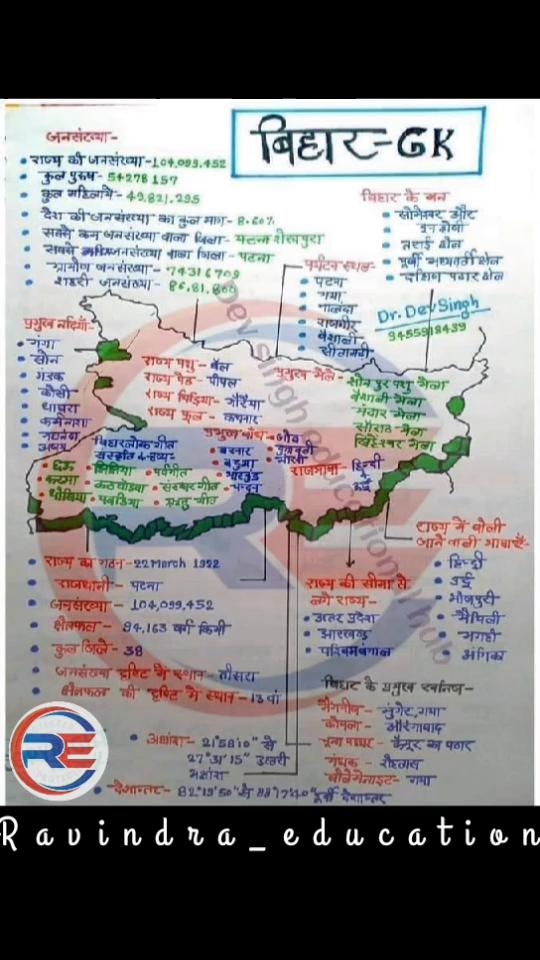 बिहार-GK
जनसंख्या-
राज्य की जनसंख्या-104,099,452
कुल पुरुष- 54278157
कुल महिलायें- 49,821,295
देश की जनसंख्या का कुल भाग- 8.60%
सबसे कम जनसंख्या वाला जिला- शेखपुरा
सबसे जनसंख्या वाला जिला- पटना
ग्रामीण जनसंख्या- 74316709
शहरी जनसंख्या-
बिहार के वन
सोमेश्वर और
दून श्रेणी
तराई क्षेत्र
पूर्वी मध्यवर्ती क्षेत्र
दक्षिण पठार क्षेत्र
पर्यटन स्थल-
पटना
गया
नालंदा
राजगीर
वैशाली
Dr. Dev Singh
9455918439
Dev Singh education hub
प्रमुख नदियाँ-
गंगा
सोन
गंडक
कोसी
घाघरा
कर्मनाशा
राज्य पशु- बैल
राज्य पेड- पीपल
राज्य चिड़िया- गौरैया
राज्य फूल- कचनार
प्रमुख मेले- सोनपुर पशु मेला
वैशाली मेला
मंदार मेला
सौराठ मेला
मेला
प्रमुख बाँध-
बदुआ
चन्दन
बिहार लोकगीत
पर्वगीत
संस्कार गीत
राजभाषा- हिन्दी
उर्दू
राज्य में बोली
जाने वाली भाषाएँ-
हिन्दी
उर्दू
भोजपुरी
मैथिली
मगही
अंगिका
राज्य का गठन- 22 March 1922
राजधानी- पटना
जनसंख्या- 104,099,452
क्षेत्रफल- 94,163 वर्ग किमी
कुल जिले- 38
जनसंख्या दृष्टि में स्थान- तीसरा
क्षेत्रफल की दृष्टि में स्थान- 13 वां
राज्य की सीमा से
लगे राज्य-
उत्तर प्रदेश
झारखण्ड
पश्चिम बंगाल
बिहार के प्रमुख खनिज-
मैंगनीज- मुंगेर, गया
कोयला- औरंगाबाद
चूना पत्थर- कैमूर का पठार
गंधक- रोहतास
गया
अक्षांश- 21°58'10" से
27°31'15" उत्तरी
अक्षांश
देशान्तर- 82°19'50" से 88°17'40" पूर्वी देशान्तर
RE
Ravindra_education